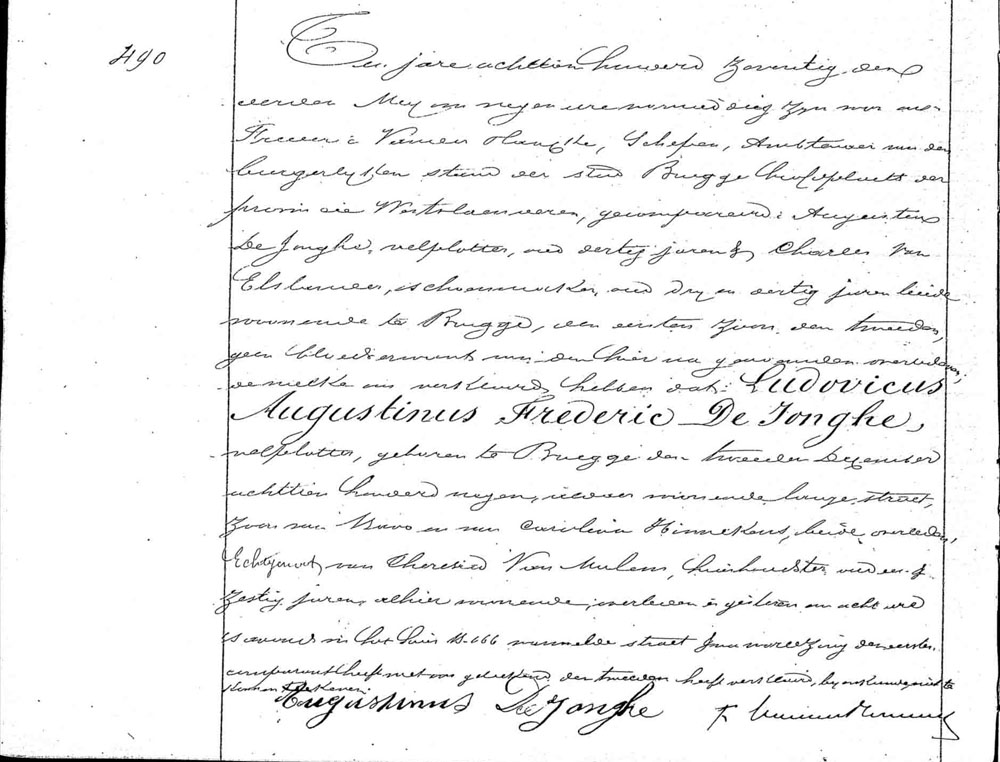 490
Ten jare achttien honderd zeventig, den
vierden Mey om negen ure voormiddag zyn voor ons
Vander Haeghe, Schepen, Ambtenaer van den
burgerlyken stand der stad Brugge hoofdplaets der
provincie Westvlaenderen, gecompareerd: Augustinus
De Jonghe, velploter, oud dertig jaren & Charles Van
Elslander, schoenmaker, oud dry en dertig jaren beide
woonende te Brugge, den eersten zoon, den tweeden,
geen bloedverwant van den hier na genoemden overleden,
dewelke ons verklaerd hebben dat: Ludovicus
Augustinus Frederic De Jonghe,
velploter, geboren te Brugge den tweeden December
achttien honderd negen, woonende lange straet,
zoon van Bavo en van Carolina Hinnekens, beide overleden,
Echtgenoot van Theresia Van Mulem, huishoudster, oud
zestig jaren, alhier woonende, overleden is gisteren om acht ure
's avonds in het huis D.666 voormelde straet. Jnaer voorlezing den eersten
comparant heeft met ons geteekend, den tweeden heeft verklaerd, by niet te
konnen
Augustinus De Jonghe